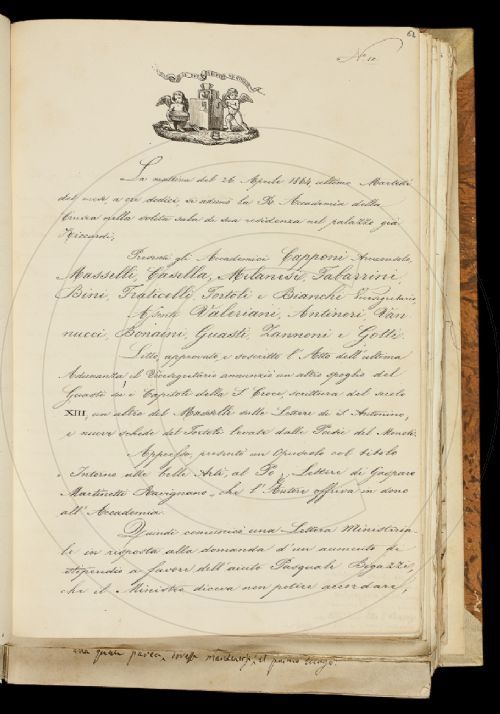 62
N.º 10.
La mattina del 26 Aprile 1864, ultimo Martedì
del mese, a ore dodici, si adunò la R. Accademia della
Crusca nella solita sala di sua residenza nel palazzo già
Riccardi;
Presenti gli Accademici Capponi Arciconsolo,
Masselli, Casella, Milanesi, Tabarrini,
Bini, Fraticelli, Tortoli e Bianchi Vicesegretario
Assenti Valeriani, Antinori, Van
nucci, Bonaini, Guasti, Zannoni e Gotti.
Letto, approvato e soscritto l'Atto dell'ultima
Adunanza, il Vicesegretario annunziò un altro spoglio del
Guasti su i Capitoli della S. Croce, scrittura del secolo
XIII, un altro del Masselli sulle Lettere di S. Antonino,
e nuove schede del Tortoli levate dalle Poesie del Menzini.
Appresso, presentò un Opuscolo col titolo
" Intorno alle belle Arti, al Po, Lettere di Gasparo
Martinetti Ravignano " che l'Autore offriva in dono
all'Accademia.
Quindi comunicò una Lettera Ministeria-
le in risposta alla domanda d'un aumento di
stipendio a favore dell'aiuto Pasquale Bigazzi,
che il Ministro diceva non potere accordare;